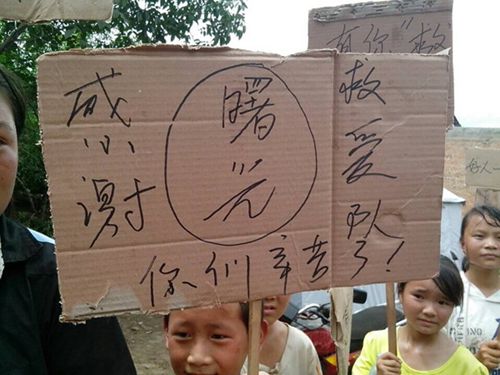 感谢
曙光
救爱队
你们辛苦了!
有你“救
好人一